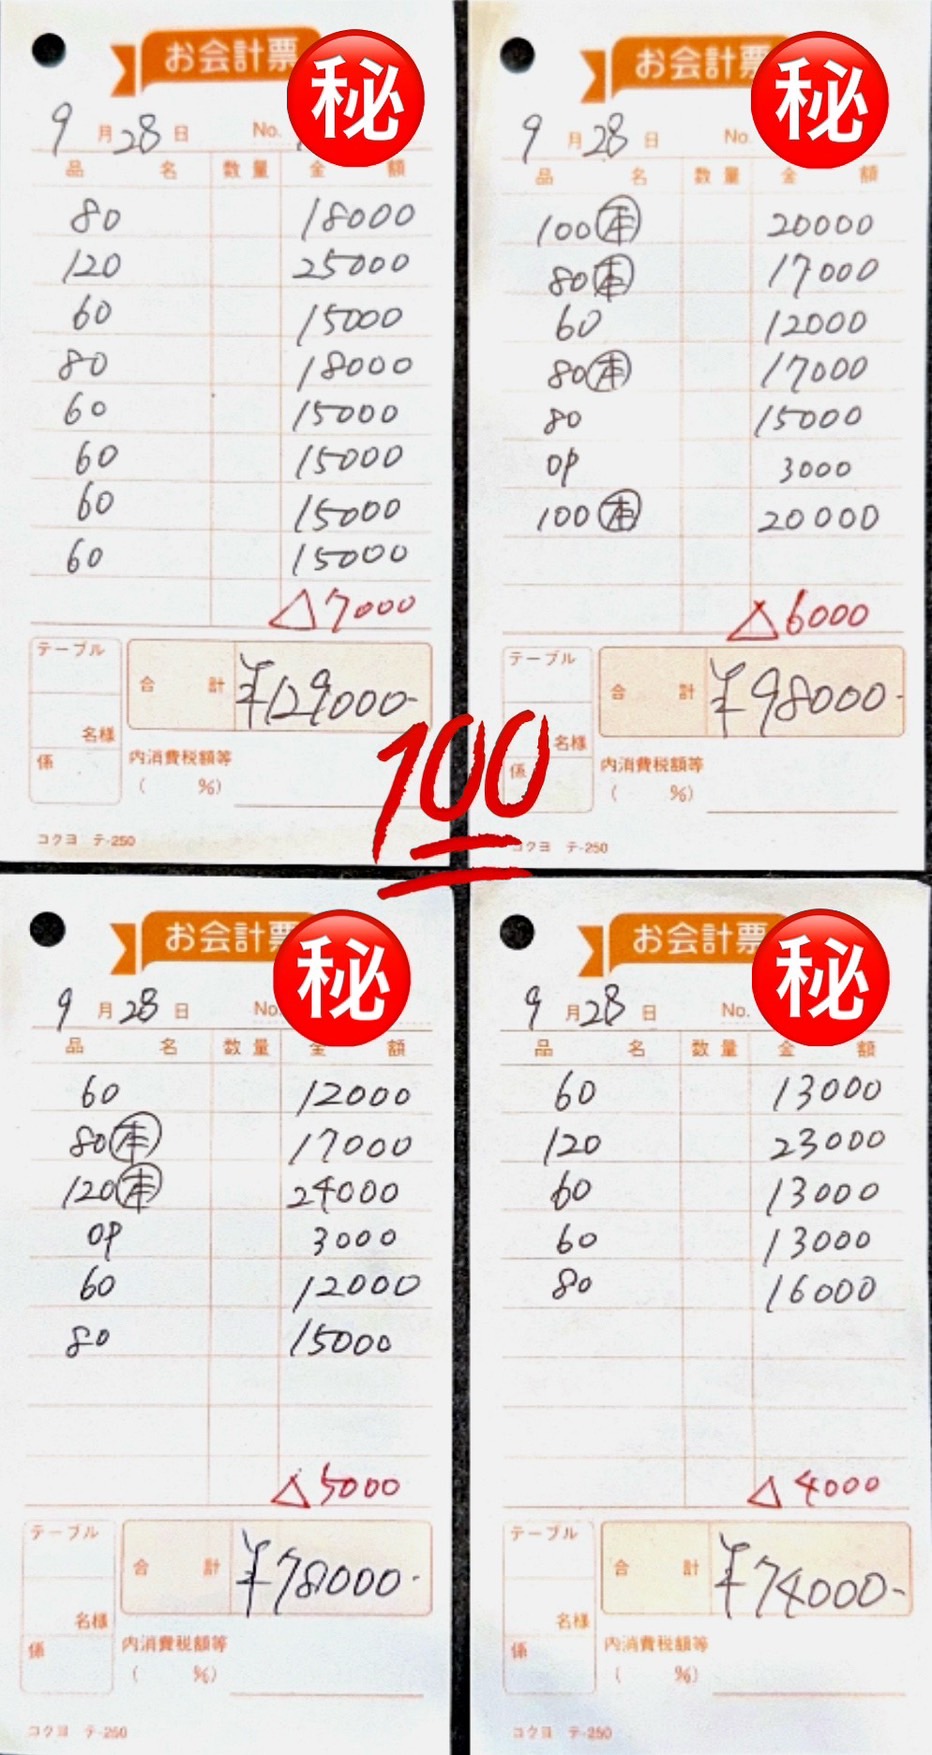 お会計票
㊙
9月28日 No.
品名 数量 金額
80 18000
120 25000
60 15000
80 18000
60 15000
60 15000
60 15000
60 15000
△7000
テーブル
名様
係
合計 ¥129000-
内消費税額等
( %)
コクヨ テ-250
お会計票
㊙
9月28日 No.
品名 数量 金額
100㊍ 20000
80㊍ 17000
60 12000
80㊍ 17000
80 15000
OP 3000
100㊍ 20000
△6000
テーブル
名様
係
合計 ¥98000-
内消費税額等
( %)
コクヨ テ-250
100
お会計票
㊙
9月28日 No.
品名 数量 金額
60 12000
80㊍ 17000
120㊍ 24000
OP 3000
60 12000
80 15000
△5000
テーブル
名様
係
合計 ¥78000-
内消費税額等
( %)
コクヨ テ-250
お会計票
㊙
9月28日 No.
品名 数量 金額
60 13000
120 23000
60 13000
60 13000
80 16000
△4000
テーブル
名様
係
合計 ¥74000-
内消費税額等
( %)
コクヨ テ-250